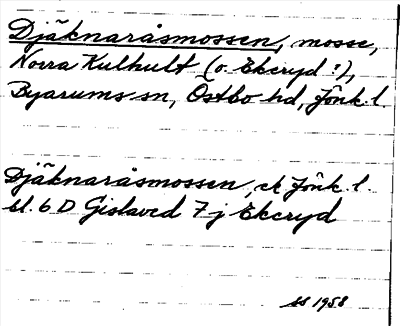 Djäknaråsmossen, mosse,
Norra Kulhult (o. Ekeryd?),
Byarums sn, Östbo hd, Jönk. l.
Djäknaråsmossen, ek Jönk. l.
bl. 6 D Gislaved 7 j Ekeryd
SS 1958